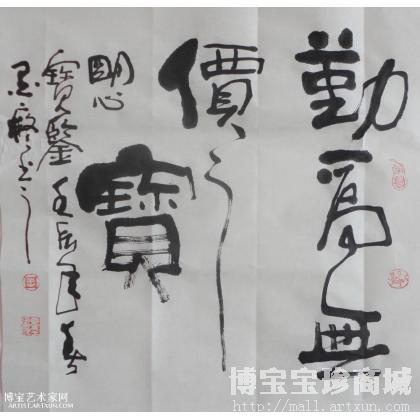 勤爲無
價之
寶
明心
寶鑒壬辰年春
博宝艺术家网
ARTIST.ARTXUN.COM
博宝宝珍商城
http://mall.artxun.com